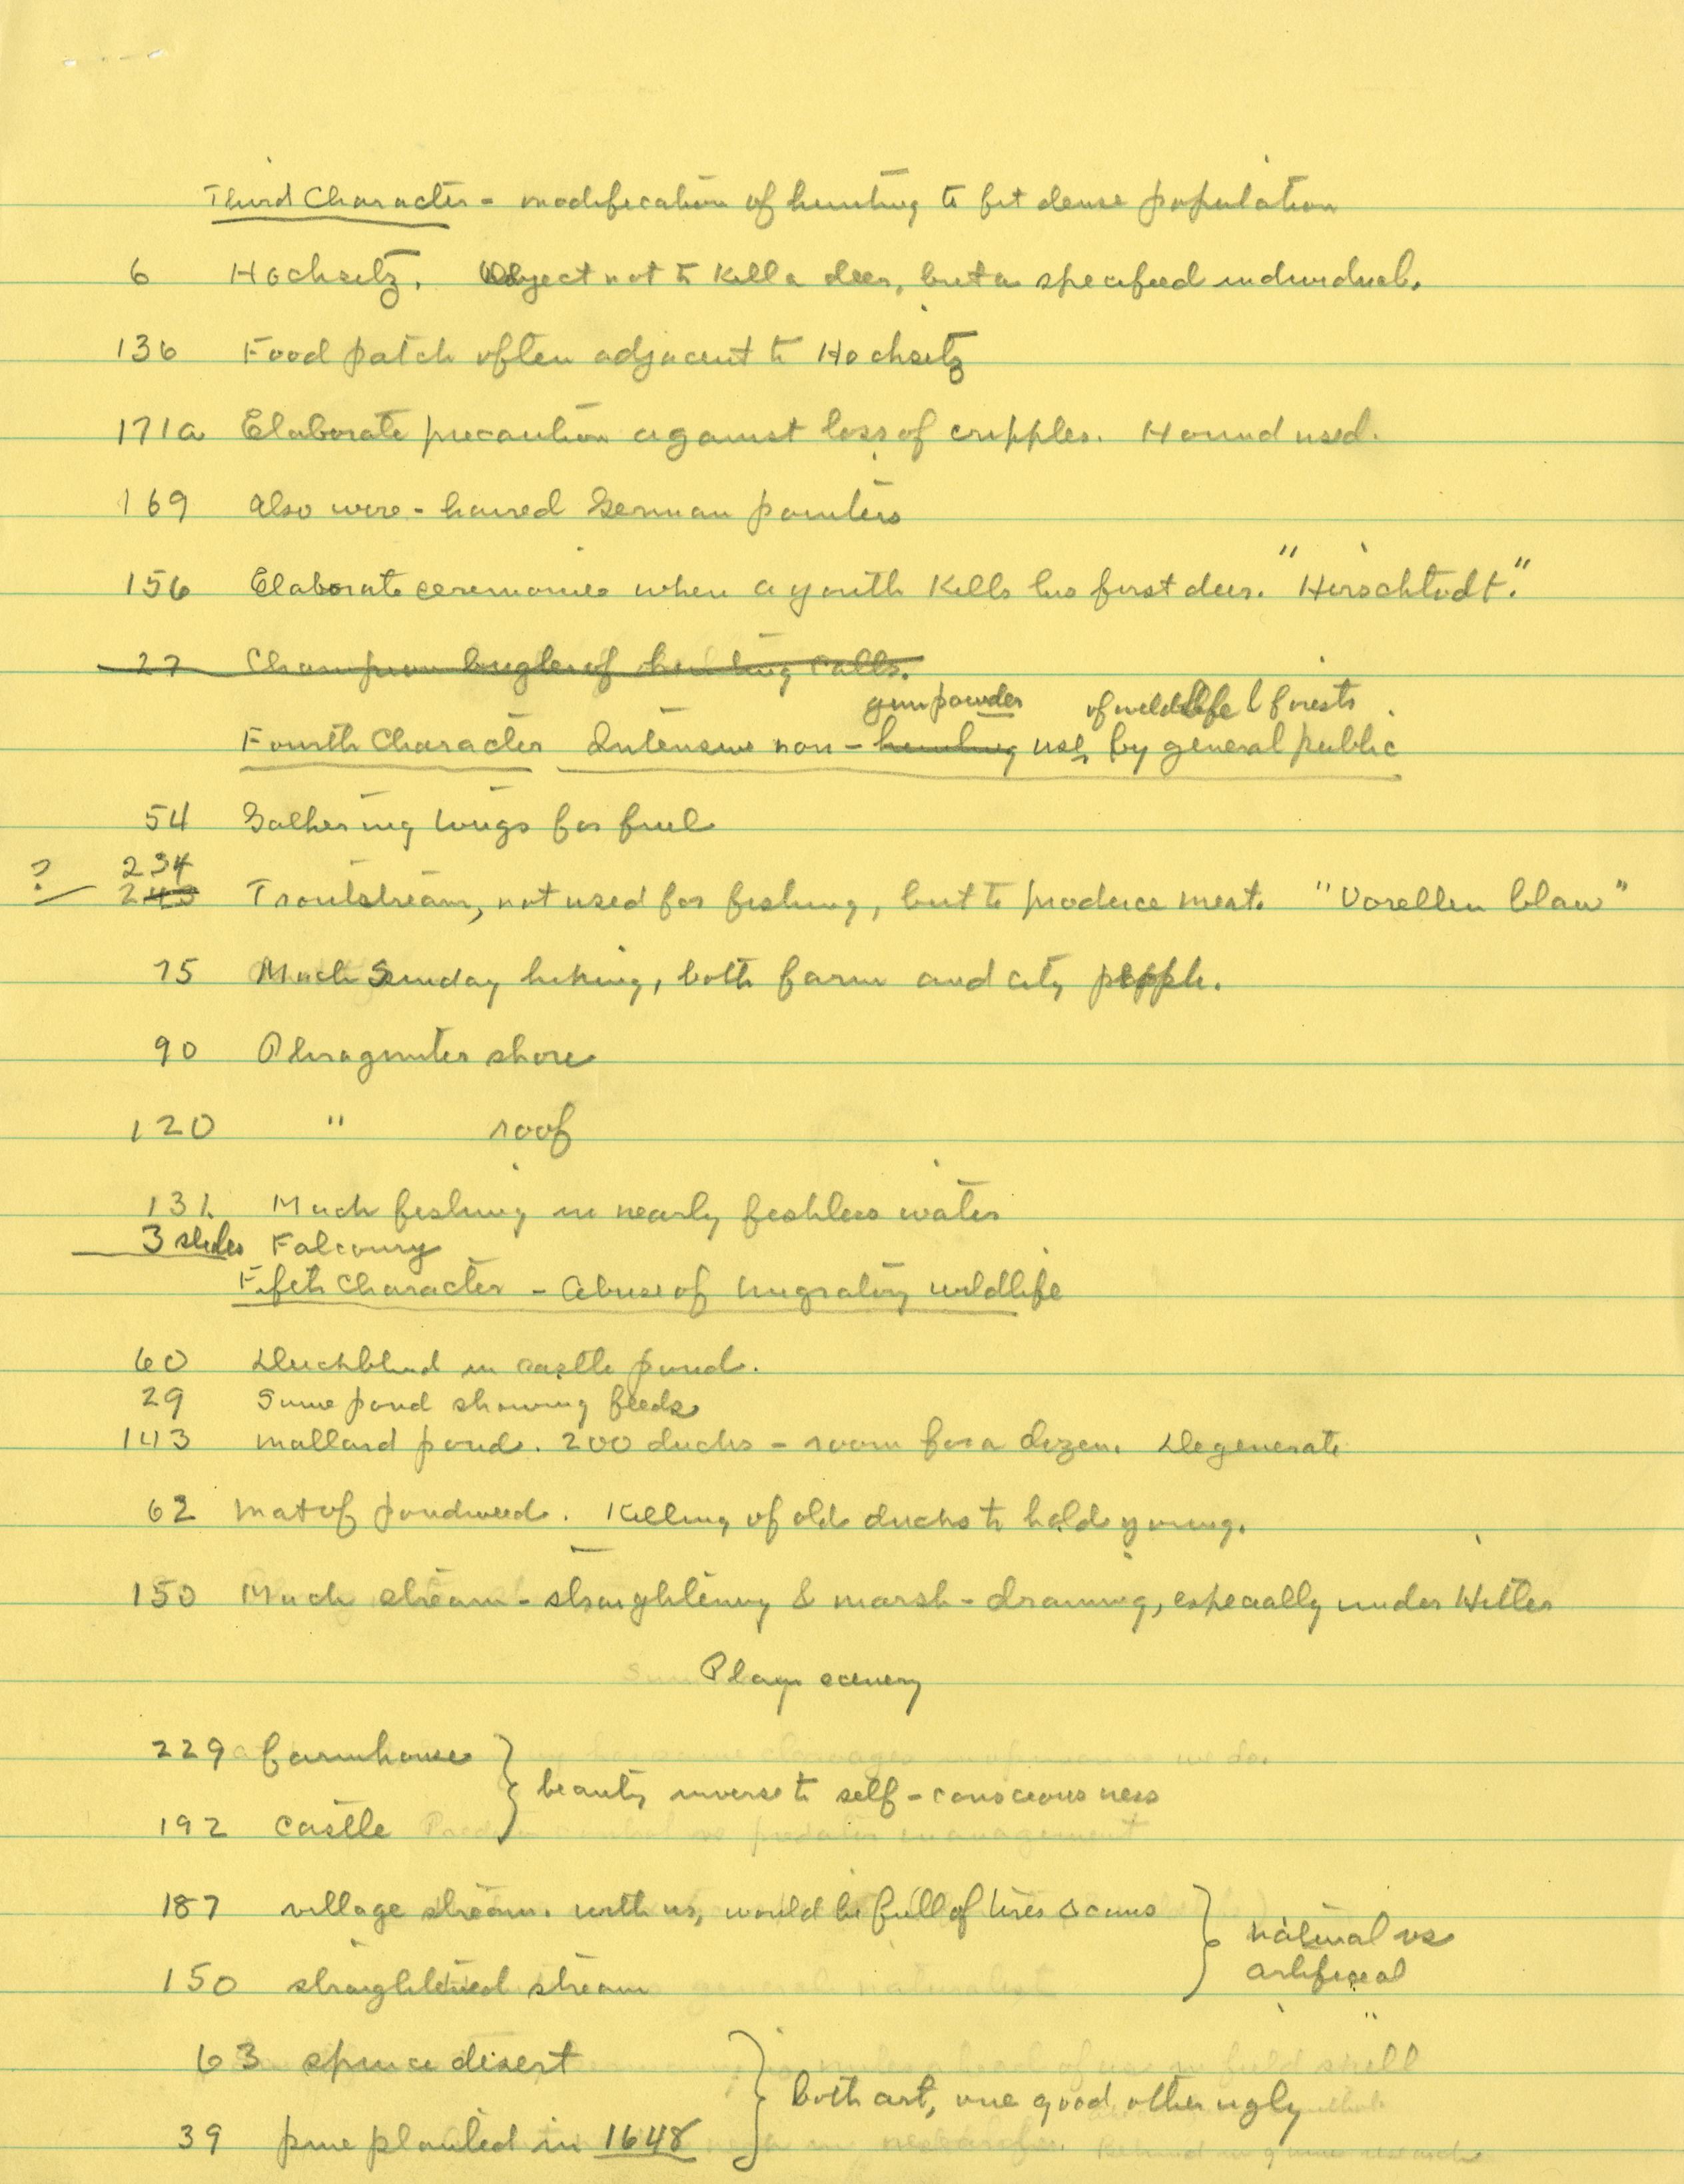 Third Character - modification of hunting to fit dense population
6 Hochsitz. Object not to kill a deer, but a specified individual.
136 Food patch often adjacent to Hochsitz
171a Elaborate precaution against loss of cripples. Hound used.
169 Also wire-haired German pointers
156 Elaborate ceremonies when a youth kills his first deer. "Hirschtodt."
27 Champion bugler of hunting calls.
gunpowder of wildlife & forests
Fourth Character Intensive non-hunting use, by general public
54 Gathering twigs for fuel
? 234
243 Troutstream, not used for fishing, but to produce meat. "Vorellen blau"
75 Much Sunday hiking, both farm and city people.
90 Phragmites shore
120 " roof
131. Much fishing in nearly fishless water
3 slides Falconry
Fifth Character - Abuse of migratory wildlife
60 Duckblind in castle pond.
29 Same pond showing feeds
143 Mallard pond. 200 ducks - room for a dozen. Degenerate
62 Mat of pondweed. Killing of old ducks to hold young.
150 Much stream-straightening & marsh-draining, especially under Hitler
Plays scenery
229 farmhouse
beauty inverse to self-consciousness
192 castle
187 village stream. with us, would be full of tires & cans
natural vs
artificial
150 straightened stream
63 spruce desert
both art, one good other ugly
39 pine planted in 1648